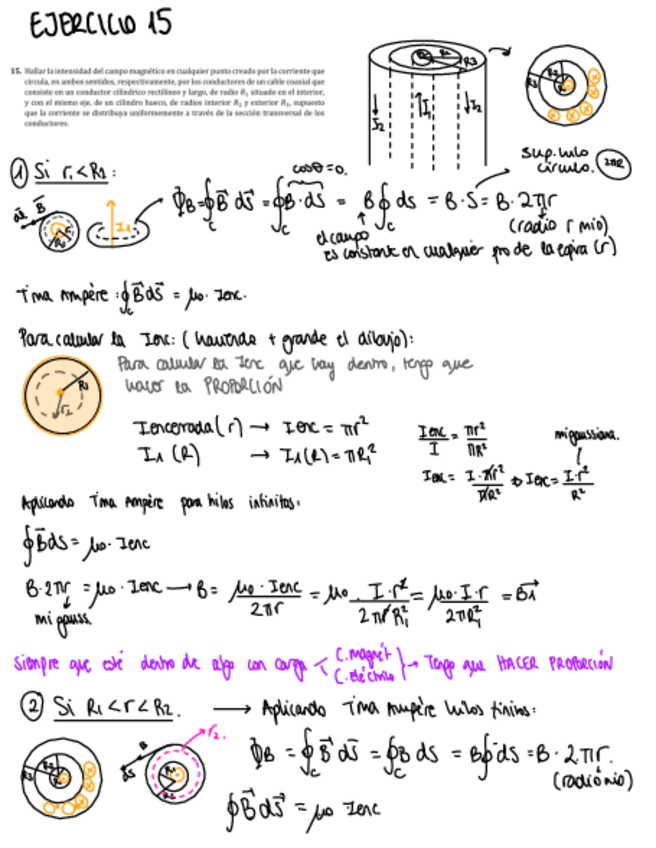 EJERCICIO 15
15. Hallar la intensidad del campo magnético en cualquier punto creado por la corriente que
circula, en ambos sentidos, respectivamente, por los conductores de un cable coaxial que
consiste en un conductor cilíndrico rectilíneo y largo, de radio R₁ situado en el interior,
y con el mismo eje, de un cilindro hueco, de radios interior R₂ y exterior R₃, supuesto
que la corriente se distribuya uniformemente a través de la sección transversal de los
conductores.
R₃
I₂ I₁ I₂
① Si r₁<R₁:
cosθ=0.
sup. hilo
círculo. 2πR
Φ_B=∮_c B⃗ ds⃗ = ∮_c B·ds = B∮ds = B·S = B·2πr
(radio r mio)
el campo
es constante en cualquier pto de la espira (r)
Tma Ampère: ∮_c B⃗ds⃗ = μ₀·Ienc.
Para calcular la Ienc: (haciendo + grande el dibujo):
Para calcular la Ienc que hay dentro, tengo que
hacer la PROPORCIÓN
R₁
Iencerrada(r) → Ienc = πr²
I₁ (R) → I₁(R) = πR₁²
Ienc/I = πr²/πR²
mi gaussiana.
Ienc = I·πr²/πR² ⇒ Ienc = I·r²/R²
Aplicando Tma Ampère para hilos infinitos:
∮B⃗ds = μ₀·Ienc
B·2πr = μ₀·Ienc → B = μ₀·Ienc/2πr = μ₀·I·r²/2πrR₁² = μ₀·I·r/2πR₁² = B₁⃗
mi gauss.
Siempre que esté dentro de algo con carga < C.magnét C.eléctrico } → Tengo que HACER PROPORCIÓN
② Si R₁<r<R₂. → Aplicando Tma Ampère hilos finitos:
r₂.
Φ_B = ∮_c B⃗ ds⃗ = ∮_c B ds = B∮ds = B·2πr.
(radio mio)
∮B⃗ds⃗ = μ₀ Ienc